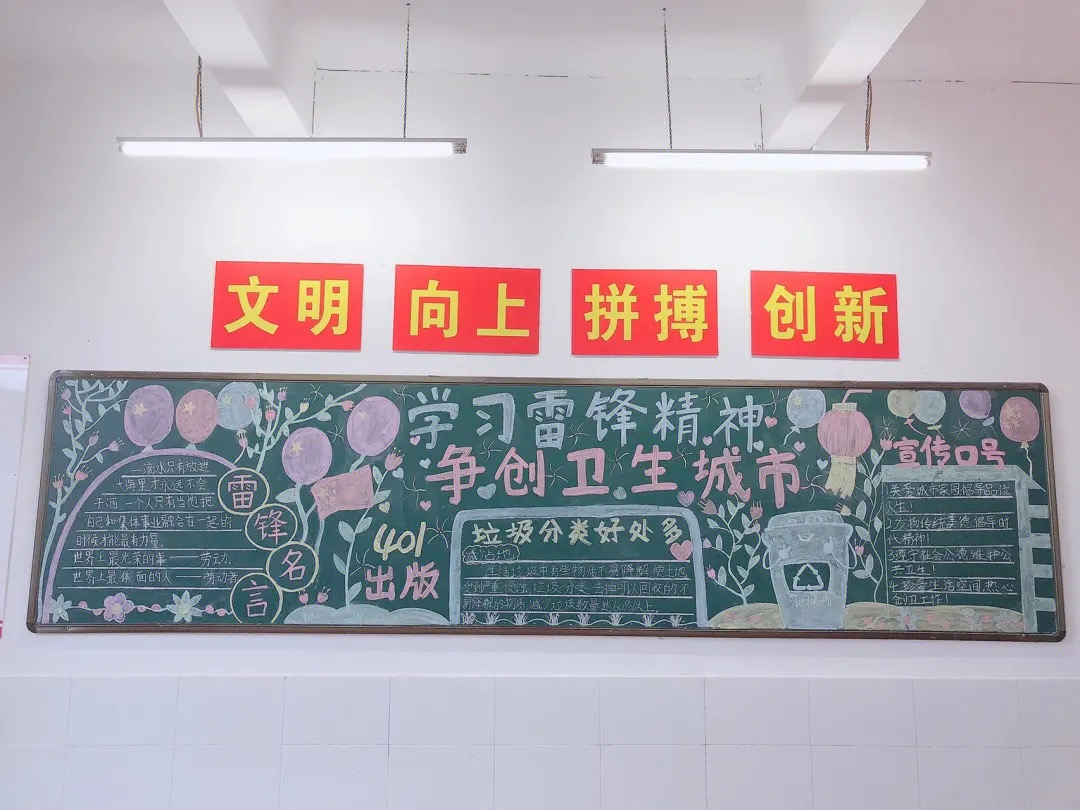 文明 向上 拼搏 创新
学习雷锋精神
争创卫生城市
雷锋名言
一滴水只有放进
大海里才永远不会
干涸一个人只有当他把
自己和集体事业融合在一起的
时候才能最有力量
世界上最光荣的事——劳动
世界上最体面的人——劳动者
401
出版
垃圾分类好处多
减少占地
生活垃圾中有些物质不易降解使土地
受到严重侵蚀垃圾分类去掉可以回收的不
易降解的物质减少垃圾数量达60%以上
可回收物
宣传口号
1关爱城市家园倡导品位
人生!
2弘扬传统美德倡导时
代精神!
3遵守社会公德维护公
共卫生!
4珍爱生活空间热心
创卫工作!